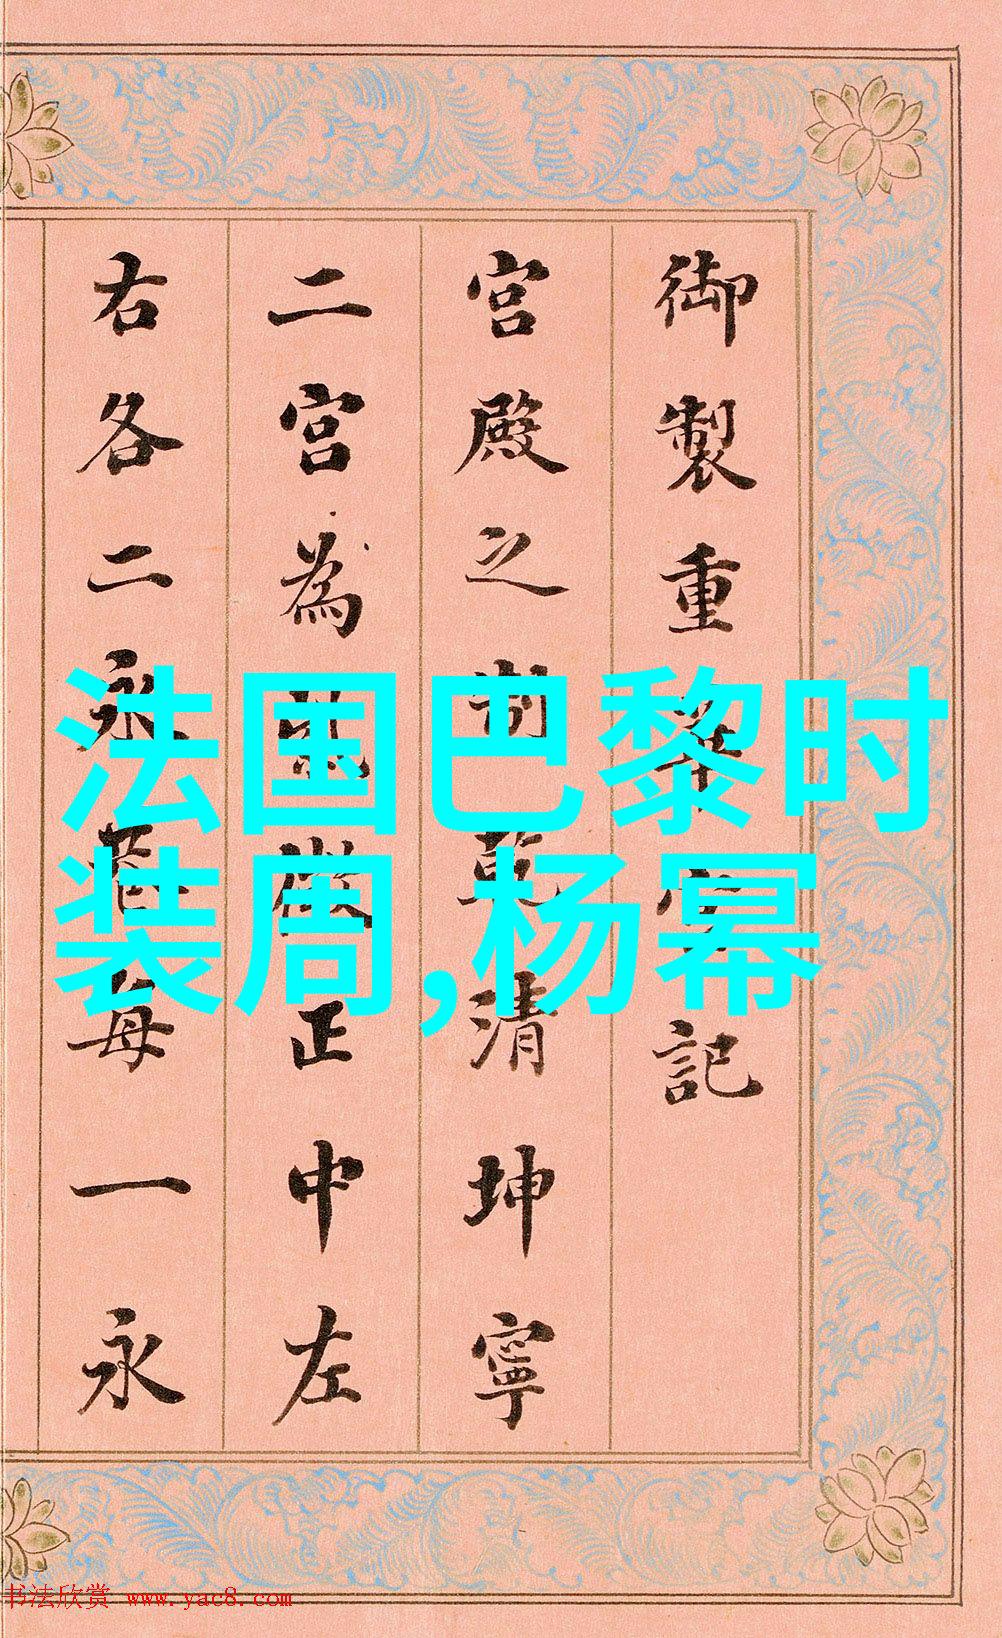 御製重華宮記
宮殿之制乾清坤寧
二宮為紫微正中左
右各二永巷每一永
法国巴黎时
装周,杨幂
书法欣赏 www.yac8.com